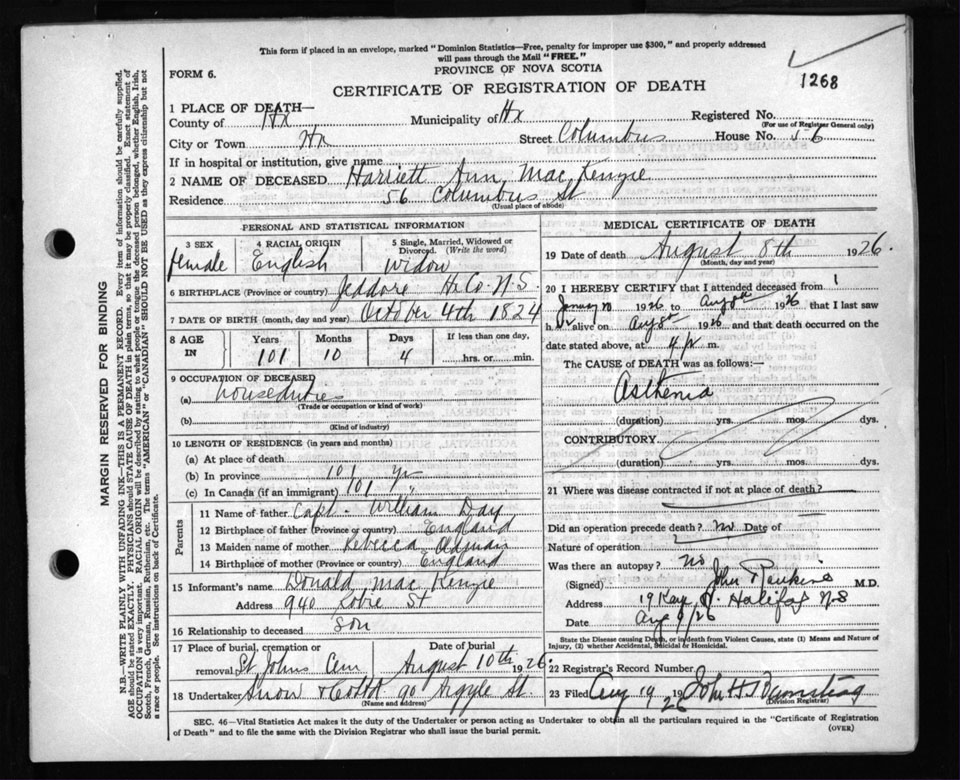 This form if placed in an envelope, marked "Dominion Statistics—Free, penalty for improper use $300," and properly addressed
will pass through the Mail "FREE."
PROVINCE OF NOVA SCOTIA
FORM 6.
CERTIFICATE OF REGISTRATION OF DEATH
1268
1 PLACE OF DEATH—
County of Hx Municipality of Hx Registered No.
(For use of Registrar General only)
City or Town Hx Street Columbus House No. 56
If in hospital or institution, give name
2 NAME OF DECEASED Harriett Ann MacKenzie
Residence 56 Columbus St
(Usual place of abode)
PERSONAL AND STATISTICAL INFORMATION
3 SEX female
4 RACIAL ORIGIN English
5 Single, Married, Widowed or Divorced. (Write the word) Widow
6 BIRTHPLACE (Province or country) Jeddore Hx Co. N.S.
7 DATE OF BIRTH (month, day and year) October 4th 1824
8 AGE IN Years 101 Months 10 Days 4 If less than one day, hrs. or min.
9 OCCUPATION OF DECEASED
(a) houseduties
(Trade or occupation or kind of work)
(b)
(Kind of industry)
10 LENGTH OF RESIDENCE (in years and months)
(a) At place of death
(b) In province 101 yr
(c) In Canada (if an immigrant) 101 yr
Parents
11 Name of father Capt. William Day
12 Birthplace of father (Province or country) England
13 Maiden name of mother Rebecca
14 Birthplace of mother (Province or country) England
15 Informant's name Donald MacKenzie
Address 940 Robie St
16 Relationship to deceased son
17 Place of burial, cremation or removal St Johns Cem
Date of burial August 10th 1926.
18 Undertaker Snow & Co Ltd 90 Argyle St.
(Name and address)
MEDICAL CERTIFICATE OF DEATH
19 Date of death August 8th 1926
(Month, day and year)
20 I HEREBY CERTIFY that I attended deceased from
1926 to Aug 8th 1926 that I last saw
her alive on Aug 8th 1926 and that death occurred on
date stated above, at 4 p. m.
The CAUSE of DEATH was as follows:—
Asthenia
(duration) yrs. mos. dys.
CONTRIBUTORY
(duration) yrs. mos. dys.
21 Where was disease contracted if not at place of death?
Did an operation precede death? no Date of
Nature of operation
Was there an autopsy? no
(Signed) John M.D.
Address Halifax N-S
Date Aug 9/26
State the Disease causing Death, or in death from Violent Causes, state (1) Means and Nature of
Injury, (2) whether Accidental, Suicidal or Homicidal.
22 Registrar's Record Number
23 Filed Aug 19 1926
(Division Registrar)
SEC. 46—Vital Statistics Act makes it the duty of the Undertaker or person acting as Undertaker to obtain all the particulars required in the "Certificate of Registration
of Death" and to file the same with the Division Registrar who shall issue the burial permit.
(OVER)
MARGIN RESERVED FOR BINDING
N.B.—WRITE PLAINLY WITH UNFADING INK—THIS IS A PERMANENT RECORD. Every item of information should be carefully supplied.
AGE should be stated EXACTLY. PHYSICIANS should STATE CAUSE OF DEATH in plain terms, so that it may be properly classified. Exact statement of
OCCUPATION is very important. RACIAL ORIGIN will be described by stating to what people or tongue the deceased person belonged, whether English, Irish,
Scotch, French, German, Russian, Ruthenian, etc. The terms "AMERICAN" or "CANADIAN" SHOULD NOT BE USED as they express citizenship but not
a race or people. See instructions on back of Certificate.